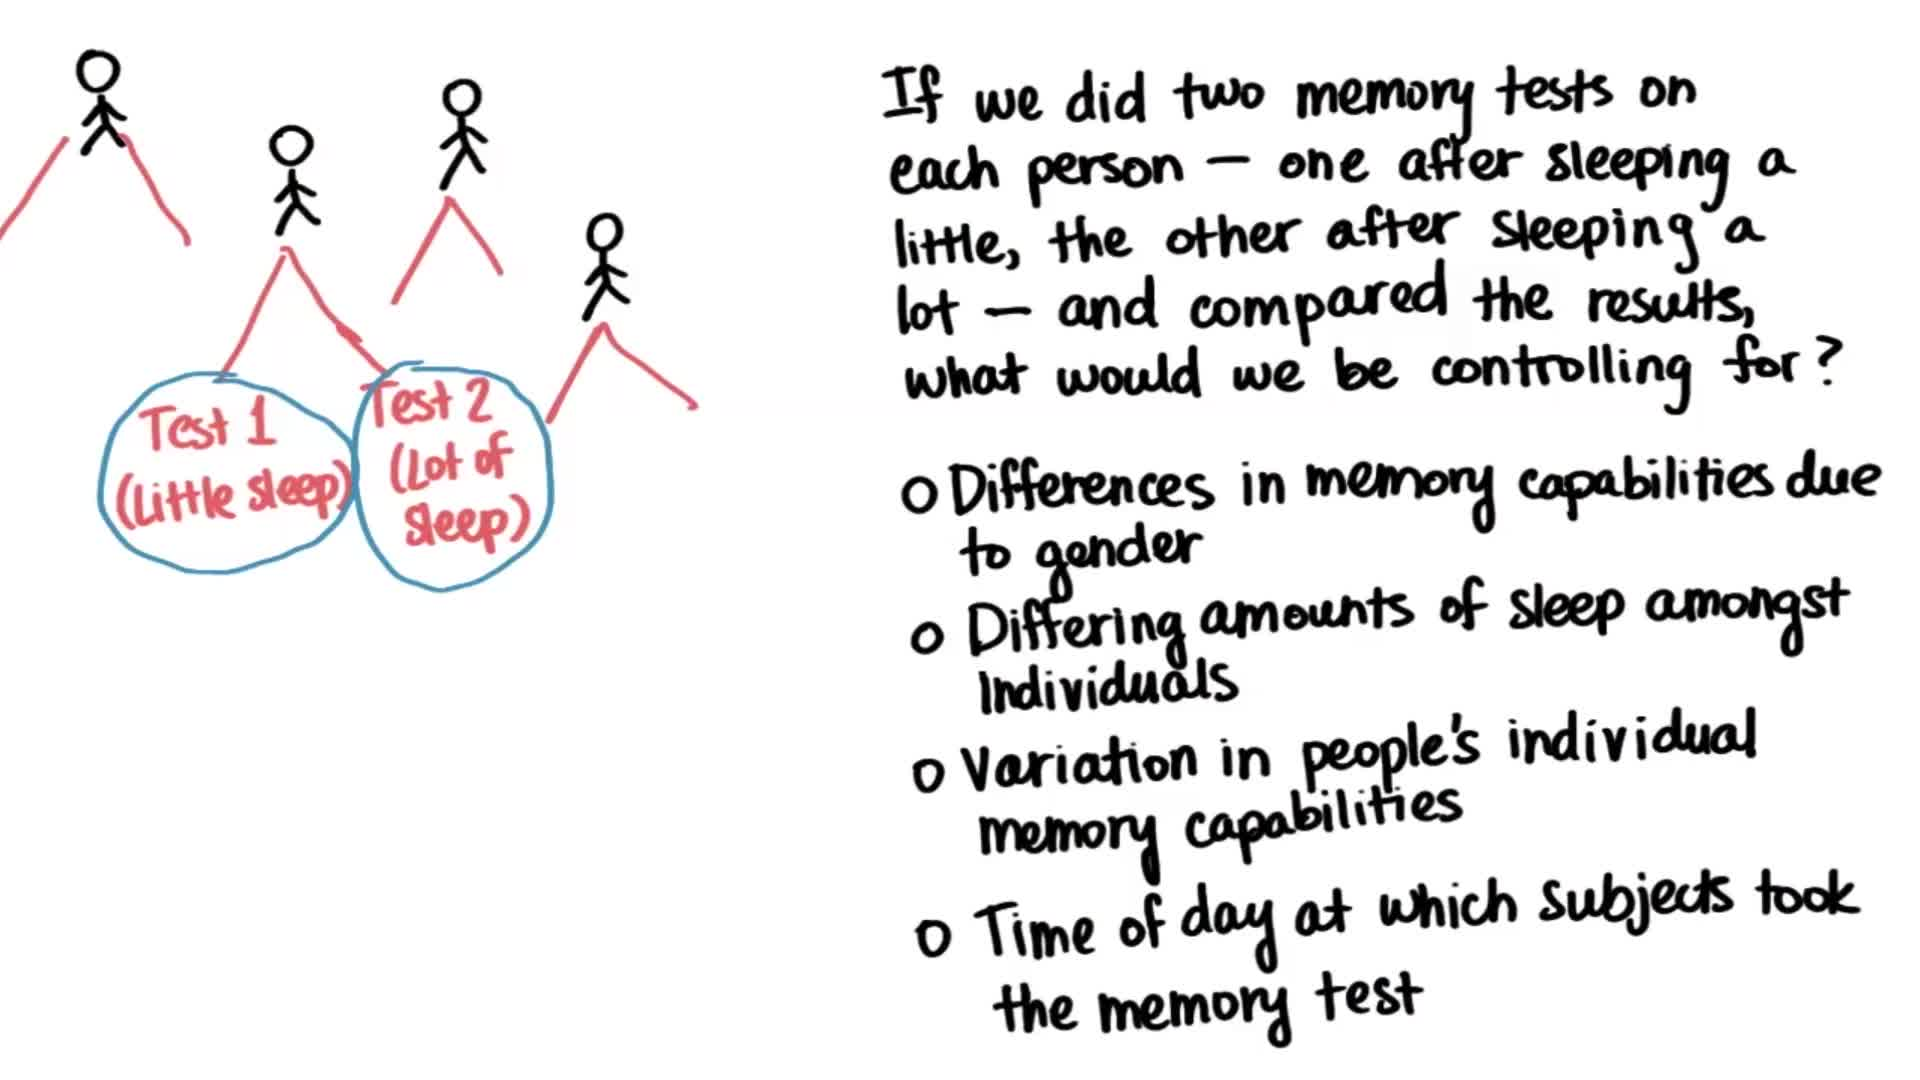 If we did two memory tests on
each person — one after sleeping a
little, the other after sleeping a
lot — and compared the results,
what would we be controlling for?
Test 1
(Little sleep)
Test 2
(Lot of
sleep)
O Differences in memory capabilities due
to gender
O Differing amounts of sleep amongst
Individuals
O Variation in people's individual
memory capabilities
O Time of day at which subjects took
the memory test